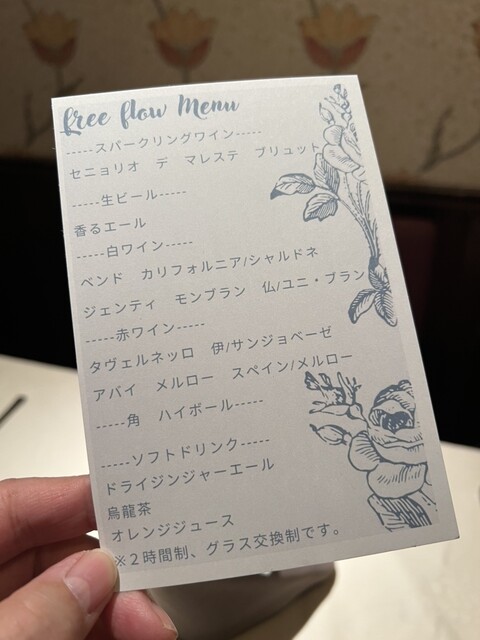 free flow Menu
-----スパークリングワイン-----
セニョリオ デ マレステ ブリュット
-----生ビール-----
香るエール
-----白ワイン-----
ベンド カリフォルニア/シャルドネ
ジェンティ モンブラン 仏/ユニ・ブラン
-----赤ワイン-----
タヴェルネッロ 伊/サンジョベーゼ
アバイ メルロー スペイン/メルロー
-----角 ハイボール-----
-----ソフトドリンク-----
ドライジンジャーエール
烏龍茶
オレンジジュース
※2時間制、グラス交換制です。